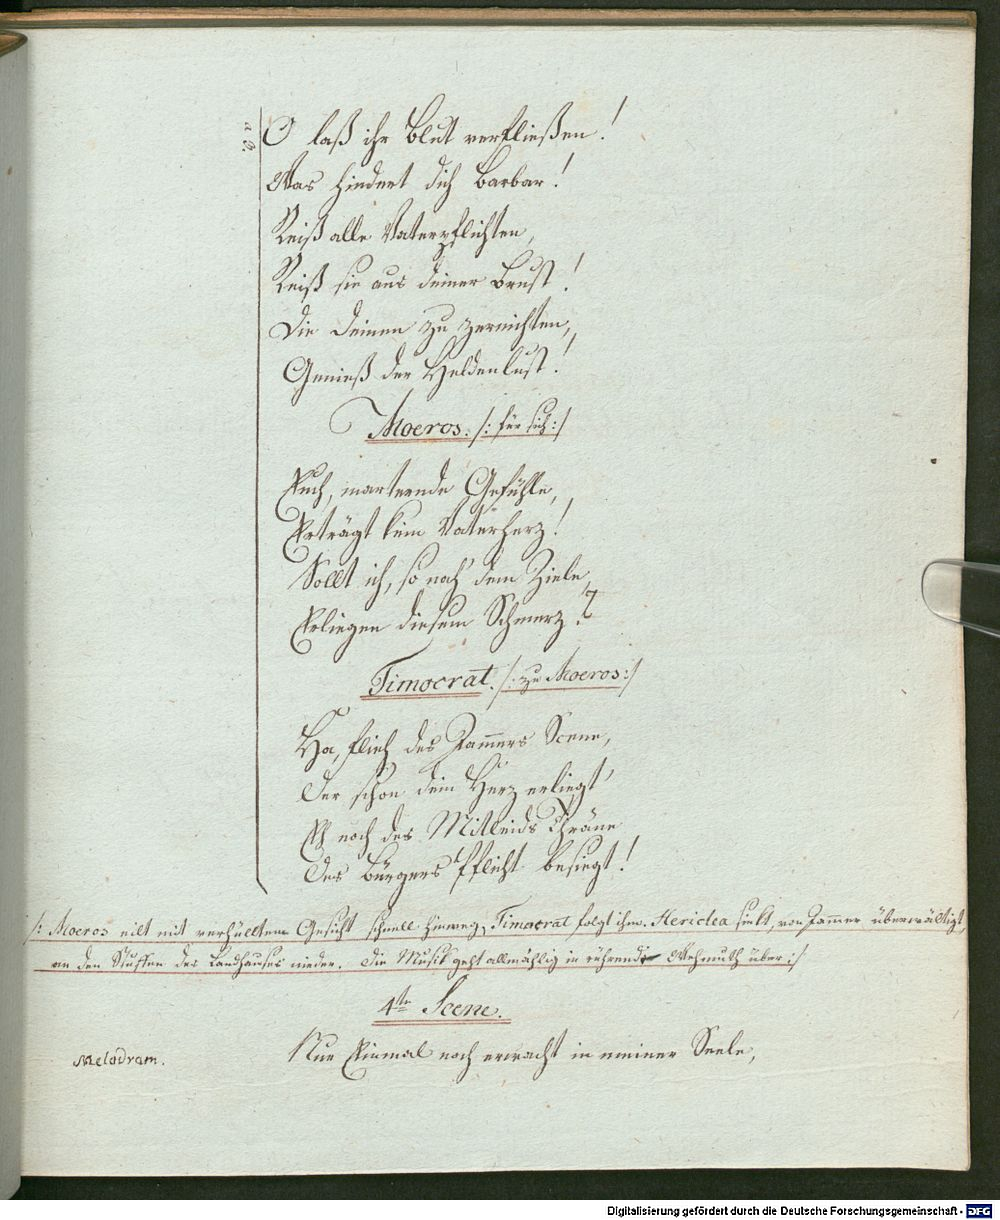 a 3.
O laß ihr Blut verfließen!
Was hindert dich Barbar!
Reiß alle Vaterpflichten,
Reiß sie aus deiner Brust!
Die Deinen zu zernichten,
Genieß der Heldenlust!
Moeros. /: für sich :/
Euch, marternde Gefühle,
Erträgt kein Vaterherz!
Sollt ich, so nah' dem Ziele,
Erliegen diesem Schmerz?
Timocrat. /: zu Moeros :/
Ha, flieh des Jam̅ers Scene,
Der schon dein Herz erliegt'
Eh noch des Mitleids Thräne
Des Bürgers Pflicht besiegt!
/: Moeros eilt mit verhülltem Gesicht schnell hinweg, Timocrat folgt ihm. Hericlea sinkt, von Jammer überwältigt,
an den Stuffen des Landhauses nieder. Die Musik geht allmählig in rührende Wehmuth über :/
4te Scene.
Melodram. Nur Einmal noch erwacht in meiner Seele,
Digitalisierung gefördert durch die Deutsche Forschungsgemeinschaft - DFG